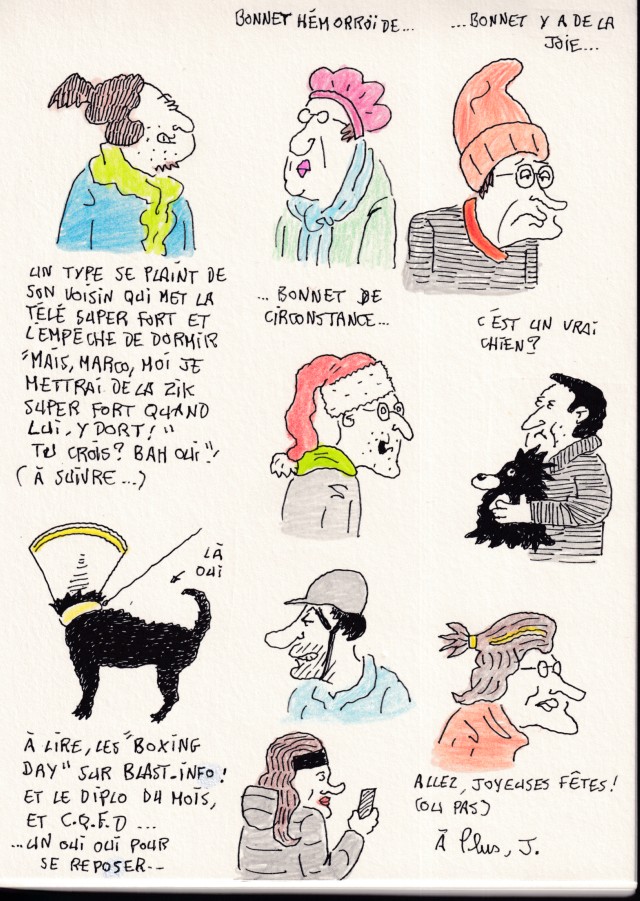 BONNET HÉMORROÏDE...
...BONNET Y A DE LA
JOIE...
UN TYPE SE PLAINT DE
SON VOISIN QUI MET LA
TÉLÉ SUPER FORT ET
L'EMPÊCHE DE DORMIR
"MAIS, MARCO, MOI JE
METTRAI DE LA ZIK
SUPER FORT QUAND
LUI, Y DORT!"
TU CROIS? BAH OUI!"
(À SUIVRE...)
...BONNET DE
CIRCONSTANCE...
C'EST UN VRAI
CHIEN?
LÀ
OUI
À LIRE, LES "BOXING
DAY" SUR BLAST-INFO!
ET LE DIPLO DU MOIS,
ET C.Q.F.D...
...UN OUI OUI POUR
SE REPOSER--
ALLEZ, JOYEUSES FÊTES!
(OU PAS)
À Plus, J.